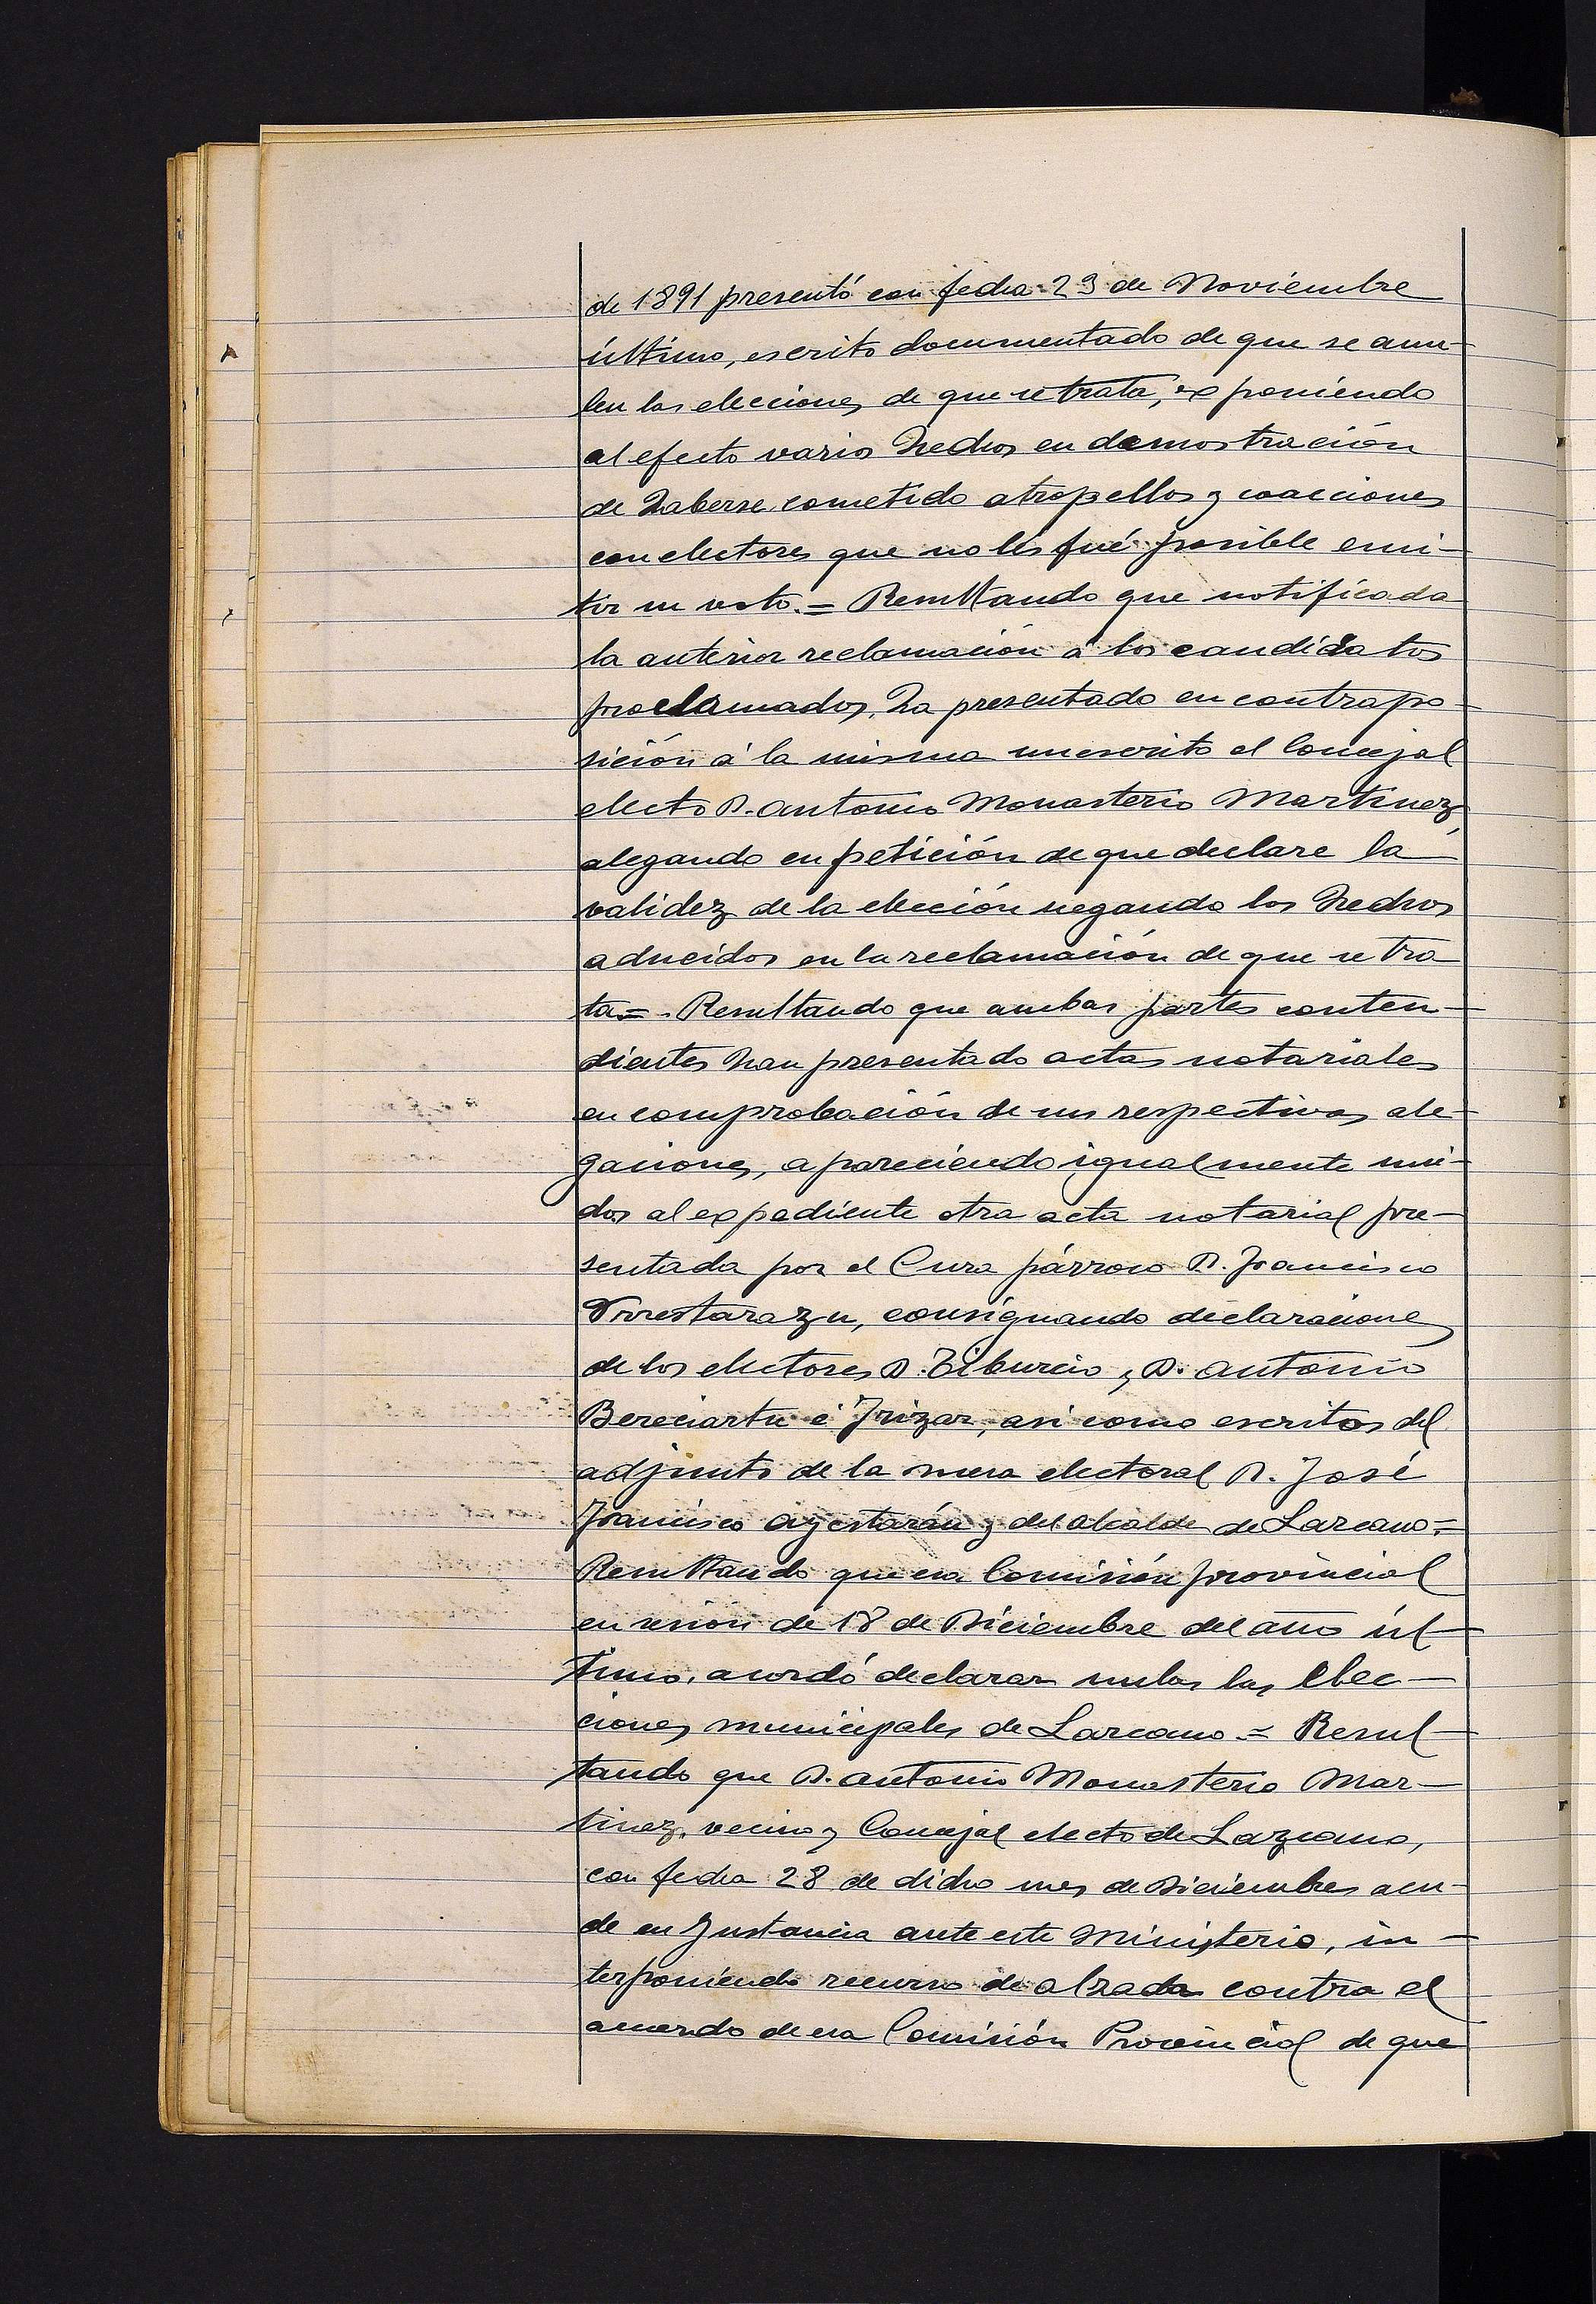 de 1891 presentó con fecha 23 de Noviembre
último, escrito documentado de que se anu-
len las elecciones de que se trata, exponiendo
al efecto varios hechos en demostración
de haberse cometido atropellos y coacciones
con electores que no les fué posible emi-
tir su voto. = Resultando que notificada
la anterior reclamación á los candidatos
proclamados, ha presentado en contrapo-
sición á la misma un escrito el Concejal
electo D. Antonio Monasterio Martinez
alegando en petición de que declare la
validez de la elección negando los hechos
aducidos en la reclamación de que se tra-
ta = Resultando que ambas partes conten-
dientes han presentado actas notariales
en comprobación de sus respectivas ale-
gaciones, apareciendo igualmente uni-
dos al expediente otra acta notarial pre-
sentada por el Cura párroco D. Francisco
consignando declaraciones
de los electores D. Tiburcio y D. Antonio
Bereciartu é Irizar, asi como escritos del
adjunto de la mesa electoral D. José
Francisco Ayestarán y del alcalde de Lazcano =
Resultando que esa Comisión provincial
en sesión de 18 de Diciembre del año úl-
timo, acordó declarar nulas las elec-
ciones municipales de Lazcano = Resul-
tando que D. Antonio Monasterio Mar-
tinez, vecino y Concejal electo de Lazcano,
con fecha 28 de dicho mes de Diciembre acu-
de en Instancia ante este Ministerio, in-
terponiendo recurso de alzada contra el
acuerdo de esa Comisión Provincial de que